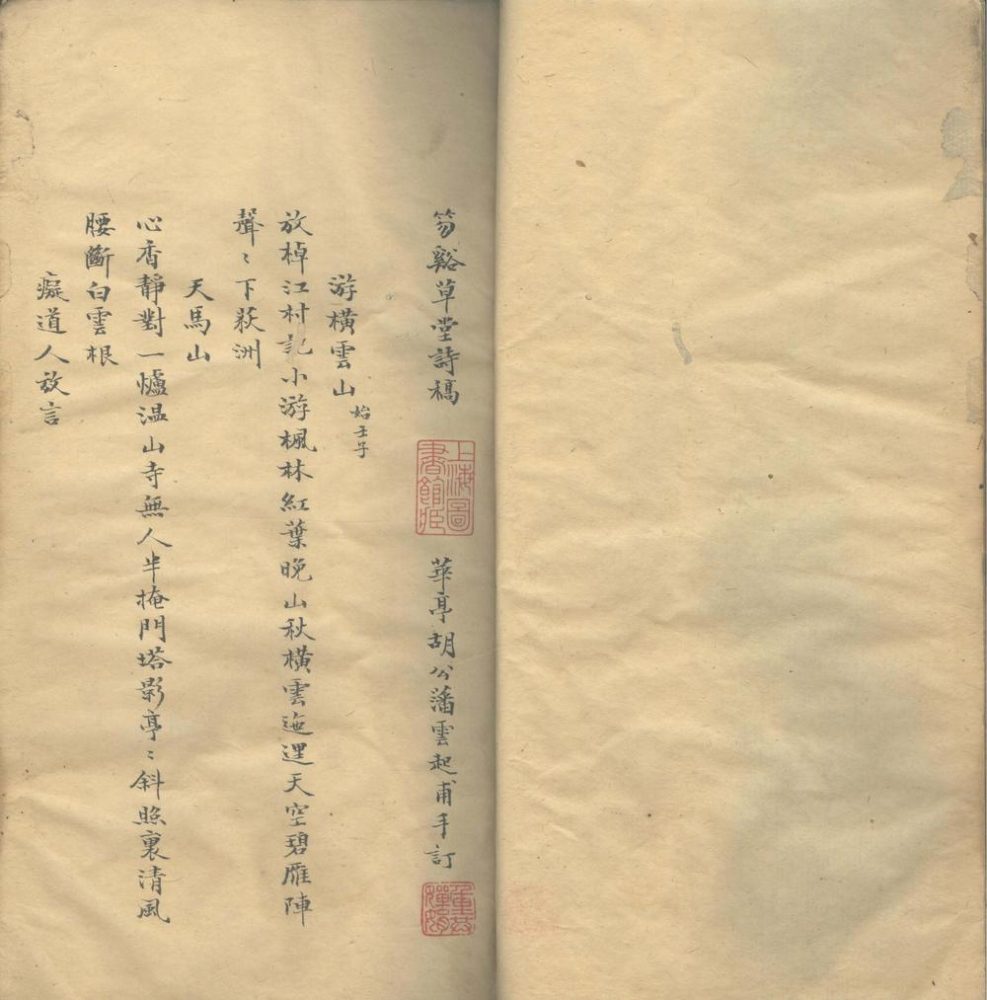 笏谿草堂詩稿
上海圖書館藏
華亭胡公藩雲起甫手訂
游橫雲山 始壬子
放棹江村記小游楓林紅葉晚山秋橫雲迤逕天空碧雁陣
聲〻下荻洲
天馬山
心香靜對一爐温山寺無人半掩門塔影亭〻斜照裏清風
腰斷白雲根
癡道人放言